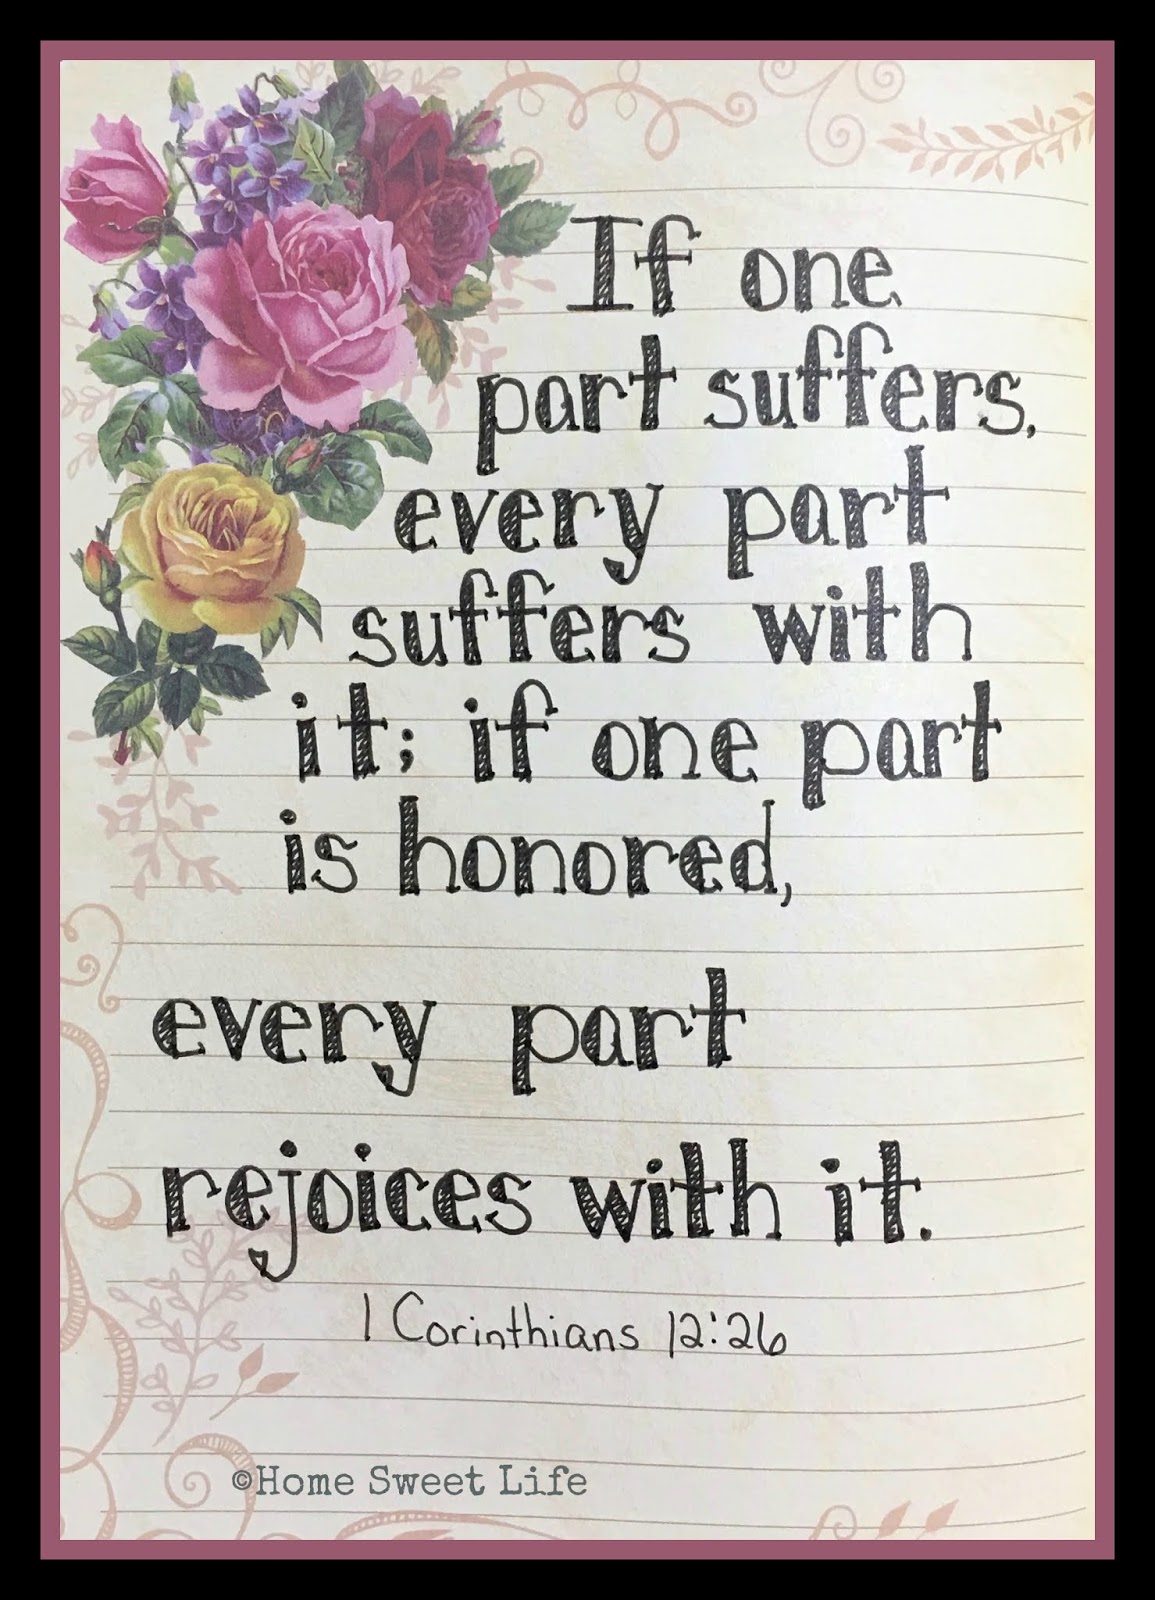 If one
part suffers,
every part
suffers with
it; if one part
is honored,
every part
rejoices with it.
1 Corinthians 12:26
©Home Sweet Life